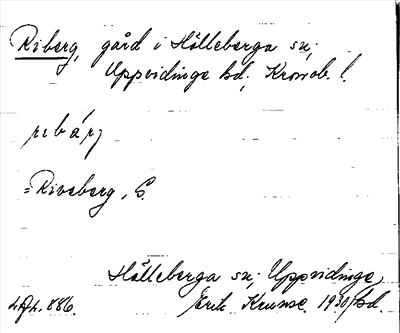 Riberg, gård i Hälleberga sn;
Uppvidinge hd; Kronob. l.
rıbárj
= Riveberg, S.
Hälleberga sn; Uppvidinge hd
Erik Krusse. 1930
886.